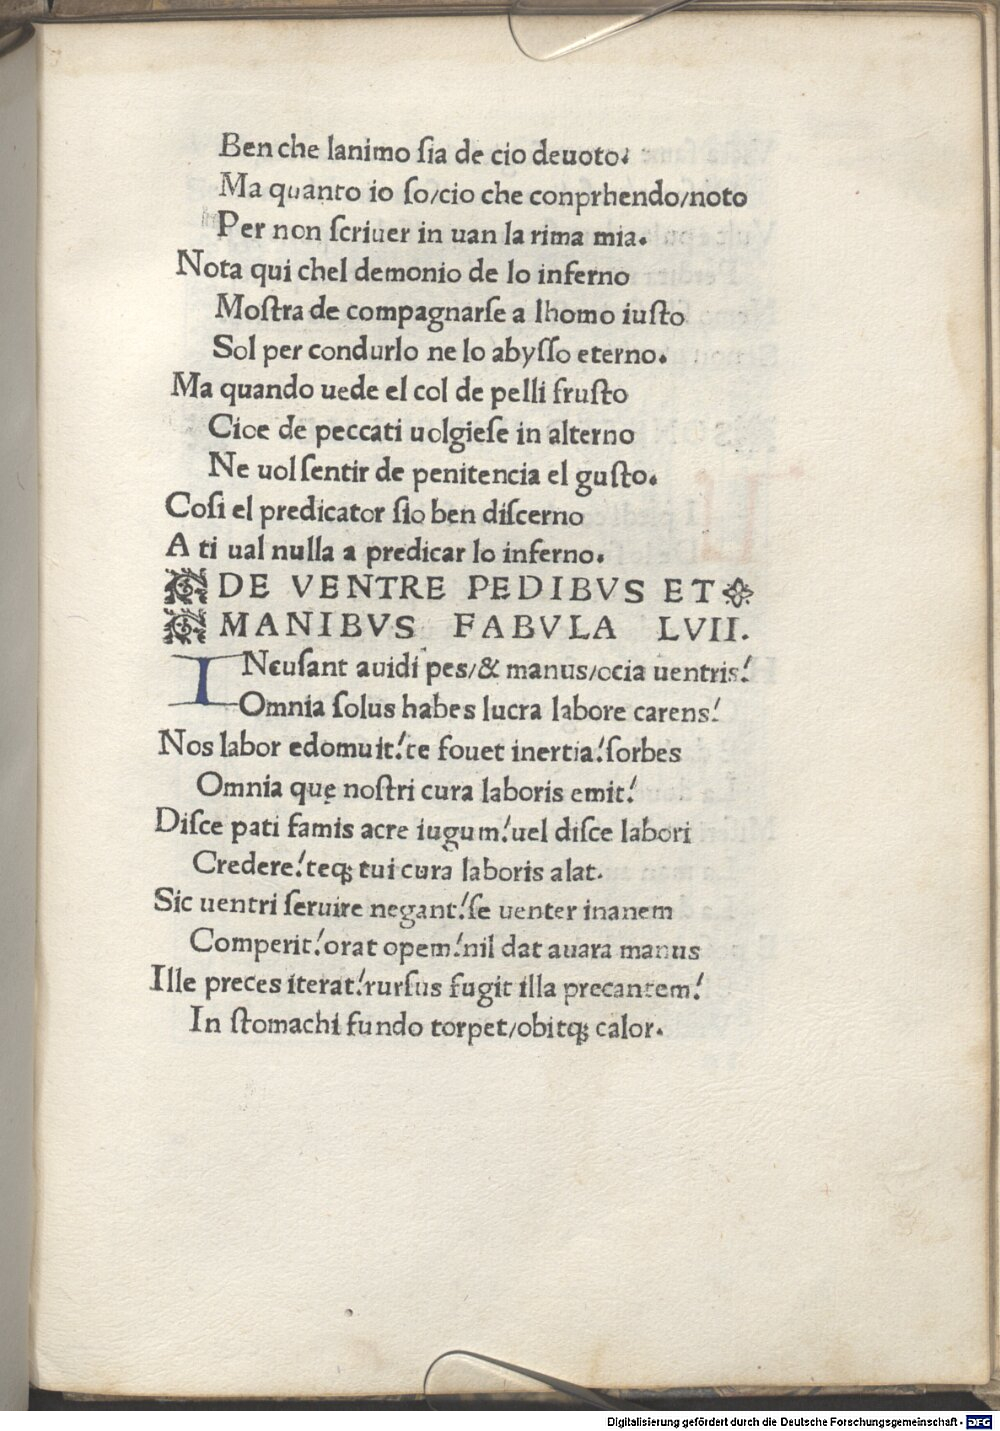 Ben che lanimo ſia de cio deuoto.
Ma quanto io ſo/cio che conprhendo/noto
Per non ſcriuer in uan la rima mia.
Nota qui chel demonio de lo inferno
Moſtra de compagnarſe a lhomo iuſto
Sol per condurlo ne lo abyſſo eterno.
Ma quando uede el col de pelli fruſto
Cioe de peccati uolgieſe in alterno
Ne uol ſentir de penitencia el guſto.
Coſi el predicator ſio ben diſcerno
A ti ual nulla a predicar lo inferno.
DE VENTRE PEDIBVS ET
MANIBVS FABVLA LVII.
INcuſant auidi pes/& manus/ocia uentris!
Omnia ſolus habes lucra labore carens!
Nos labor edomuit!te fouet inertia!ſorbes
Omnia quę noſtri cura laboris emit!
Diſce pati famis acre iugum!uel diſce labori
Credere!teq; tui cura laboris alat.
Sic uentri ſeruire negant!ſe uenter inanem
Comperit!orat opem!nil dat auara manus
Ille preces iterat!rurſus fugit illa precantem!
In ſtomachi fundo torpet/obitq; calor.
Digitalisierung gefördert durch die Deutsche Forschungsgemeinschaft - DFG